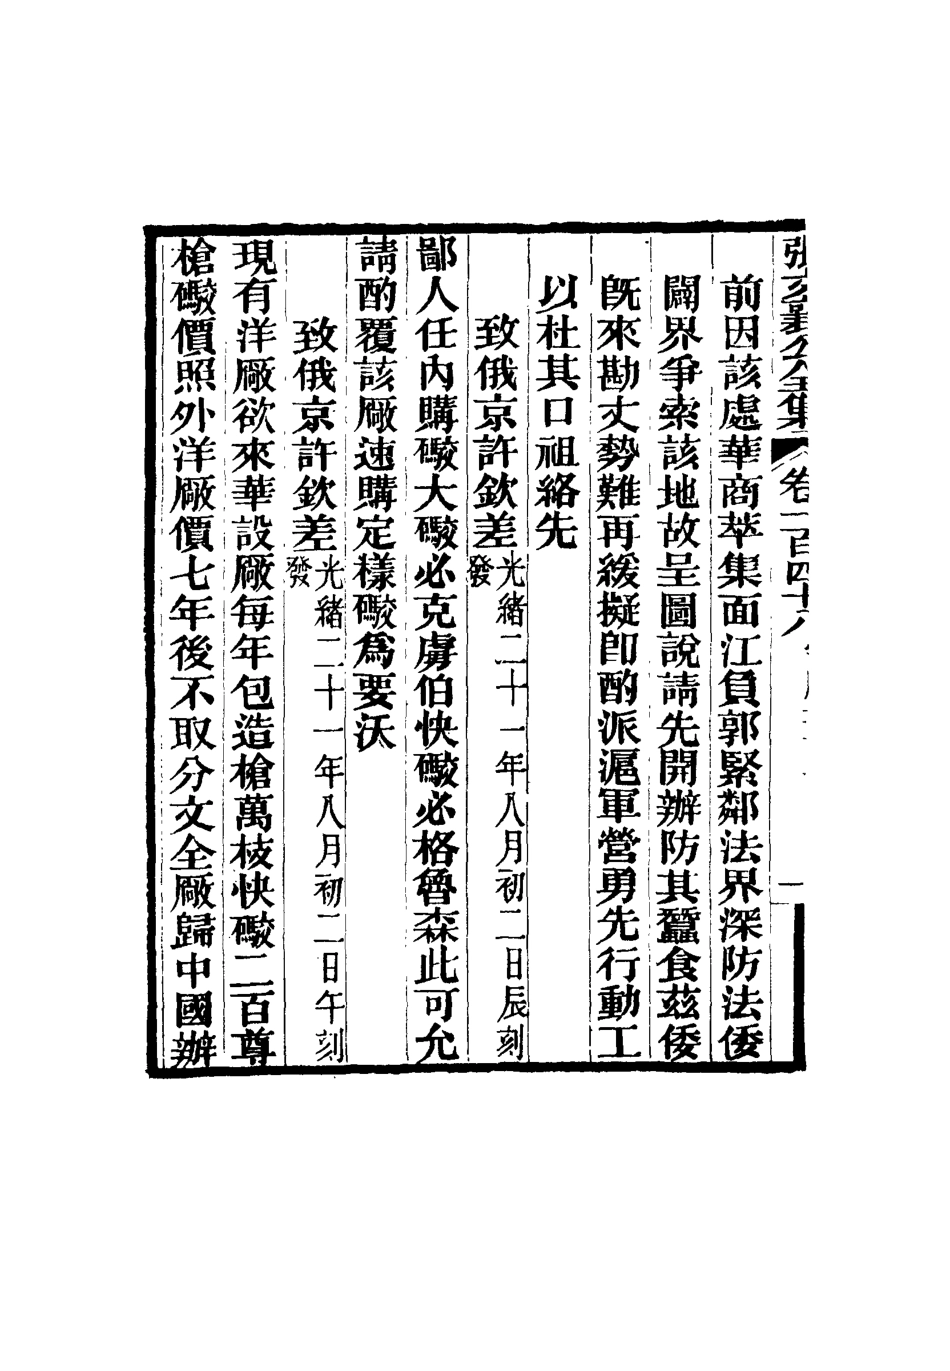 張文襄公全集 卷一百四十八
前因該處華商萃集面江負郭緊鄰法界深防法倭
闢界爭索該地故呈圖說請先開辦防其蠶食茲倭
旣來勘丈勢難再緩擬卽酌派滬軍營勇先行動工
以杜其口祖絡先
致俄京許欽差光緒二十一年八月初二日辰刻發
鄙人任內購礮大礮必克虜伯快礮必格魯森此可允
請酌覆該廠速購定樣礮爲要沃
致俄京許欽差光緒二十一年八月初二日午刻發
現有洋廠欲來華設廠每年包造槍萬枝快礮二百尊
槍礮價照外洋廠價七年後不取分文全廠歸中國辦